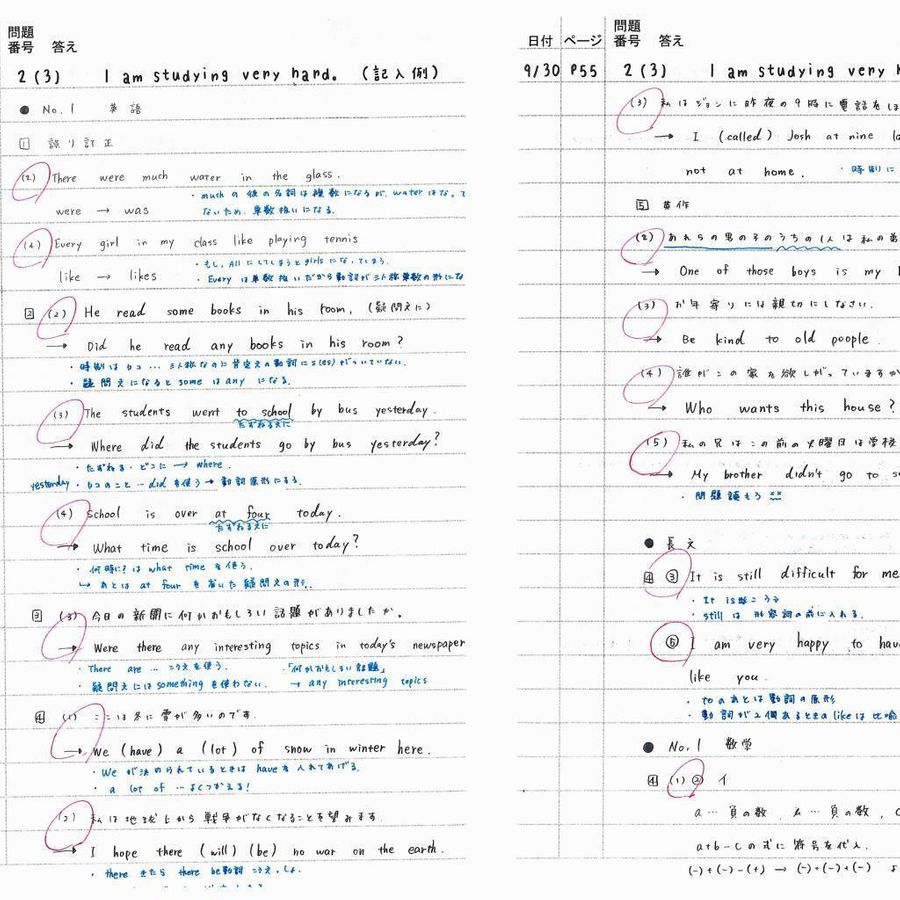 問題
番号 答え
2 (3) I am studying very hard. (記入例)
● No.1 英語
1 誤り訂正
(2) There were much water in the glass.
・muchの後の名詞は複数になるが、waterはなって
ないため、単数扱いになる。
were → was
(4) Every girl in my class like playing tennis
・もし、Allにしてしまうとgirlsになってしまう。
・Everyは単数扱いだから動詞が三人称単数の形にな
like → likes
2 (2) He read some books in his room. (疑問文に)
→ Did he read any books in his room?
・疑問文になるとsomeはanyになる。
(3) The students went to school by bus yesterday.
たずねる文に
→ Where did the students go by bus yesterday?
・たずねる・どこに → where.
yesterday・カコのこと…didを使う→動詞原形にする。
(4) School is over at four today.
たずねる文に
→ What time is school over today?
・何時に?はwhat timeを使う。
↳ あとはat fourを省いた疑問文の形。
3 (3) 今日の新聞に何かおもしろい話題がありましたか。
→ Were there any interesting topics in today's newspaper
・There are … こう文を使う。 ・「何かおもしろい話題」
・疑問文にはsomethingを使わない。 → any interesting topics
4 (1) ここは冬に雪が多いのです。
→ We (have) a (lot) of snow in winter here.
・Weが決められているときはhaveを入れてあげる。
・a lot of …よくつかえる!
(2) 私は地球上から戦争がなくなることを望みます。
→ I hope there (will) (be) no war on the earth.
・thereきたらthere be動詞こう文。しょ。
日付 ページ 問題
番号 答え
9/30 P55 2 (3) I am studying very h
(3) 私はジョンに昨夜の9時に電話をし
→ I (called) Josh at nine la
not at home. ・時制に
5 英作
(2) あれらの男の子のうちの1人は私の弟
→ One of those boys is my
(3) お年寄りには親切にしなさい。
→ Be kind to old people.
(4) 誰がこの家を欲しがっていますか
→ Who wants this house?
(5) 私の兄はこの前の火曜日は学校
→ My brother didn't go to s
・問題読もう
● 長文
4 ③ It is still difficult for me
・It is こう文
・stillは形容詞の前に入れる。
⑥ I am very happy to hav
like you.
・toのあとは動詞の原形
・動詞が2個あるときのlikeは比喩
● No.1 数学
4 (1) ② イ
a…負の数
a+b-cの式に符号を代入
(-)+(-)-(+) → (-)+(-)+(-)